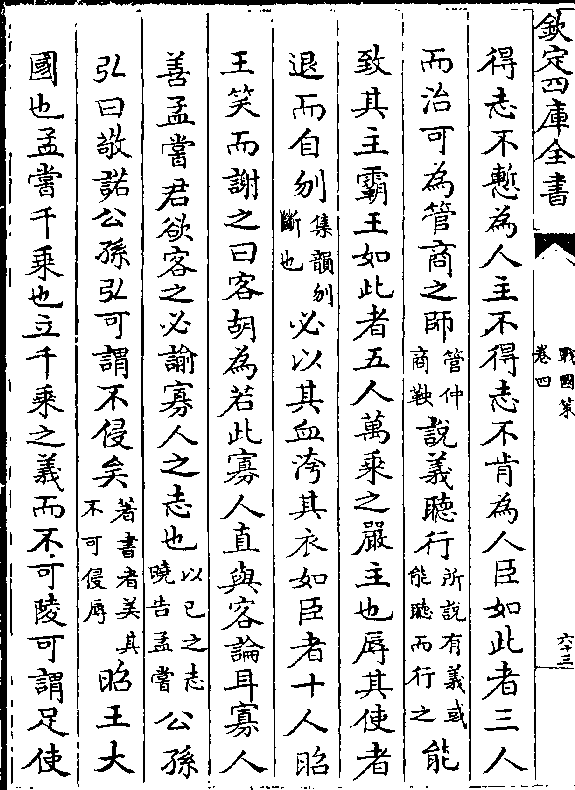 欽定四庫全書
戰國策
卷四
六十三
得志不慙為人主不得志不肯為人臣如此者三人
而治可為管商之師管仲商鞅說義聽行所說有義或能聽而行之能
致其主霸王如此者五人萬乘之嚴主也辱其使者
退而自刎集韻刎斷也必以其血洿其衣如臣者十人昭
王笑而謝之曰客胡為若此寡人直與客論耳寡人
善孟嘗君欲客之必諭寡人之志也以己之志曉告孟嘗公孫
弘曰敬諾公孫弘可謂不侵矣著書者美其不可侵辱昭王大
國也孟嘗千乘也立千乘之義而不可陵可謂足使